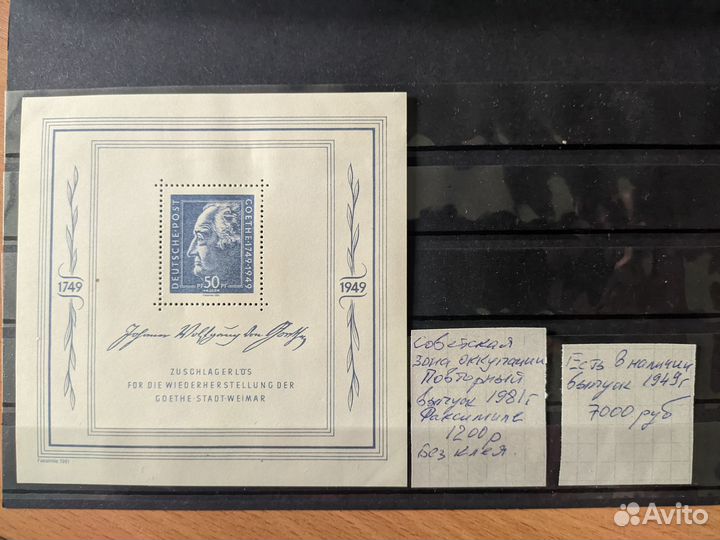 DEUTSCHE·POST
GOETHE·1749·1949
50
PF
PF
1749
1949
Johann Wolfgang von Goethe
ZUSCHLAGERLÖS
FÜR DIE WIEDERHERSTELLUNG DER
GOETHE-STADT-WEIMAR
Faksimile 1981
Советская
зона оккупации
Повторный
выпуск 1981г
Факсимиле
1200р
Без клея.
Есть в наличии
выпуск 1949г
7000 руб
Avito